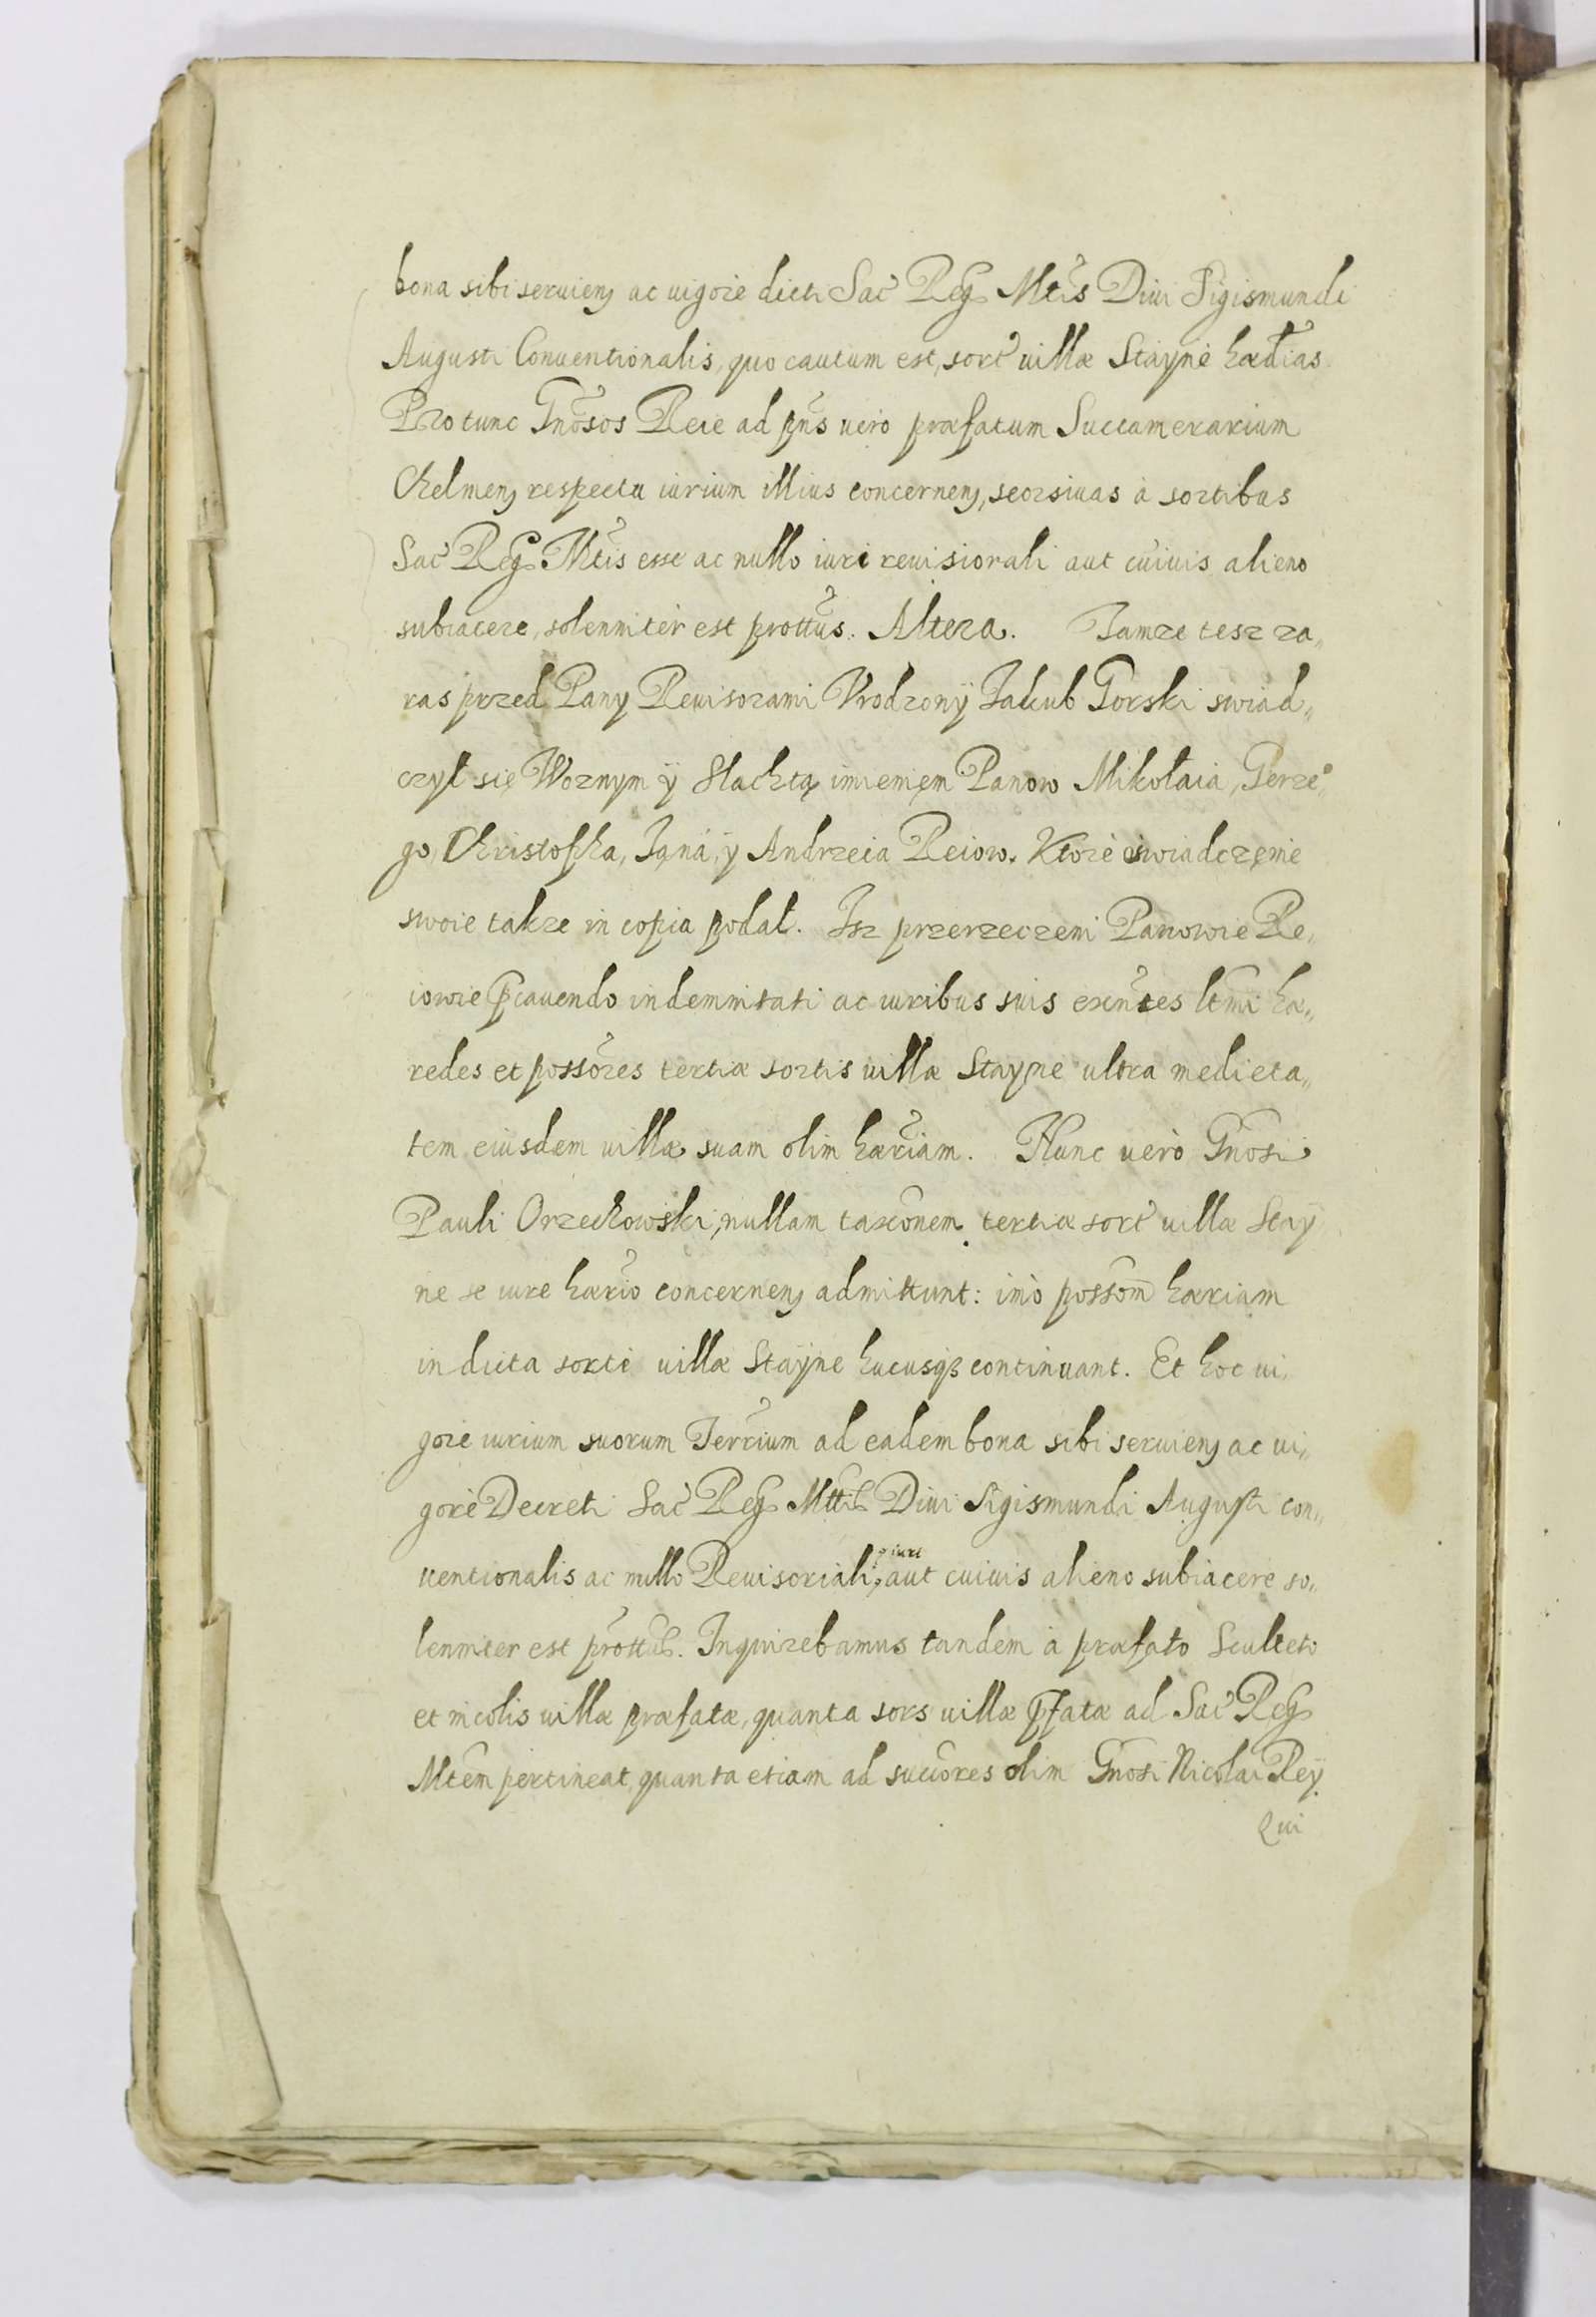 bona sibi seruien, ac uigore dicti Sac Reg Mtis Diui Sigismundi
Augusti Conuentionalis, quo cautum est, sort uillæ Stayne hædias
Pro tunc Gnosos Reie ad pns uero præfatum Succamerarium
Chelmen, respectu iurium illius concernen, seorsiuas à sortibus
Sac Reg Mtis esse ac nullo iuri reuisiorali aut cuiuis alieno
subiacere, solenniter est prottus. Altera. Tamze tesz za,,
ras przed Pany Reuisorami Vrodzony Jakub Gorski swiad,,
czył się Woznym ÿ Slachtą imieniem Panow Mikołaia, Gerze,,
go, Christopha, Jana, ÿ Andrzeia Reiow. Ktore oswiadczenie
swoie takze in copia podał. Isz przerzeczeni Panowie Re,,
iowie pcauendo indemnitati ac iuribus suis exentes ltmi hæ,,
redes et possores tertiæ sortis uillæ Stayne ultra medieta,,
tem eiusdem uillæ suam olim hæriam. Nunc uerò Gnosi
Pauli Orzechowski, nullam taxonem tertiæ sort uillæ Stay
ne se iure hærio concernen, admittunt: imò possom hæriam
in dicta sorti uillæ Stayne hucusqз continuant. Et hoc ui,,
gore iurium suorum Terrium ad eadem bona sibi seruien, ac ui,,
gore Decreti Sac Reg Mttis Diui Sigismundi Augusti con,,
uentionalis ac nullo Reuisoriali iuri aut cuiuis alieno subiacere so,,
lenniter est prottus. Inquirebamus tandem à præfato Sculteto
et incolis uillæ præfatæ, quanta sors uillæ pfatæ ad Sac Reg
Mtem pertineat, quanta etiam ad succores olim Gnosi Nicolai Reÿ
Qui